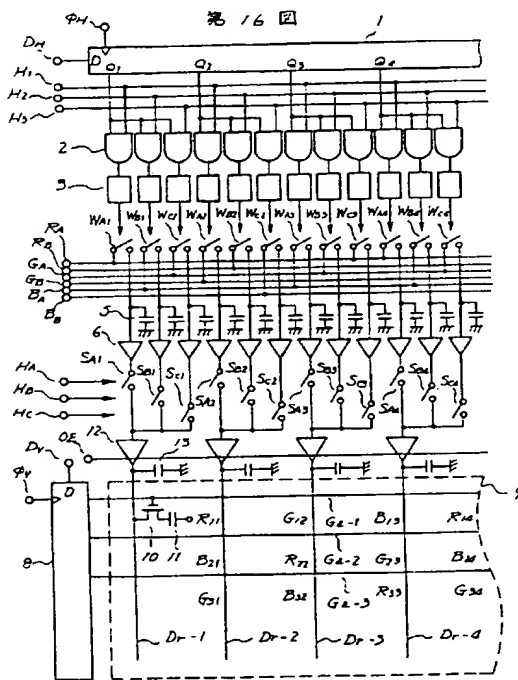 第16図
ΦH
1
DH
D
Q1 Q2 Q3 Q4
H1
H2
H3
2
3
WA1 WB1 WC1 WA2 WB2 WC2 WA3 WB3 WC3 WA4 WB4 WC4
RA
RB
GA
GB
BA
BB
5
6
SA1 SB1 SC1 SA2 SB2 SC2 SA3 SB3 SC3 SA4 SB4 SC4
HA
HB
HC
12
13
OE
DV
D
ΦV
9
8
10 11
R11 G12 Ga-1 B13 R14
B21 R22 Ga-2 G23 B24
G31 B32 Ga-3 R33 G34
Dr-1 Dr-2 Dr-3 Dr-4